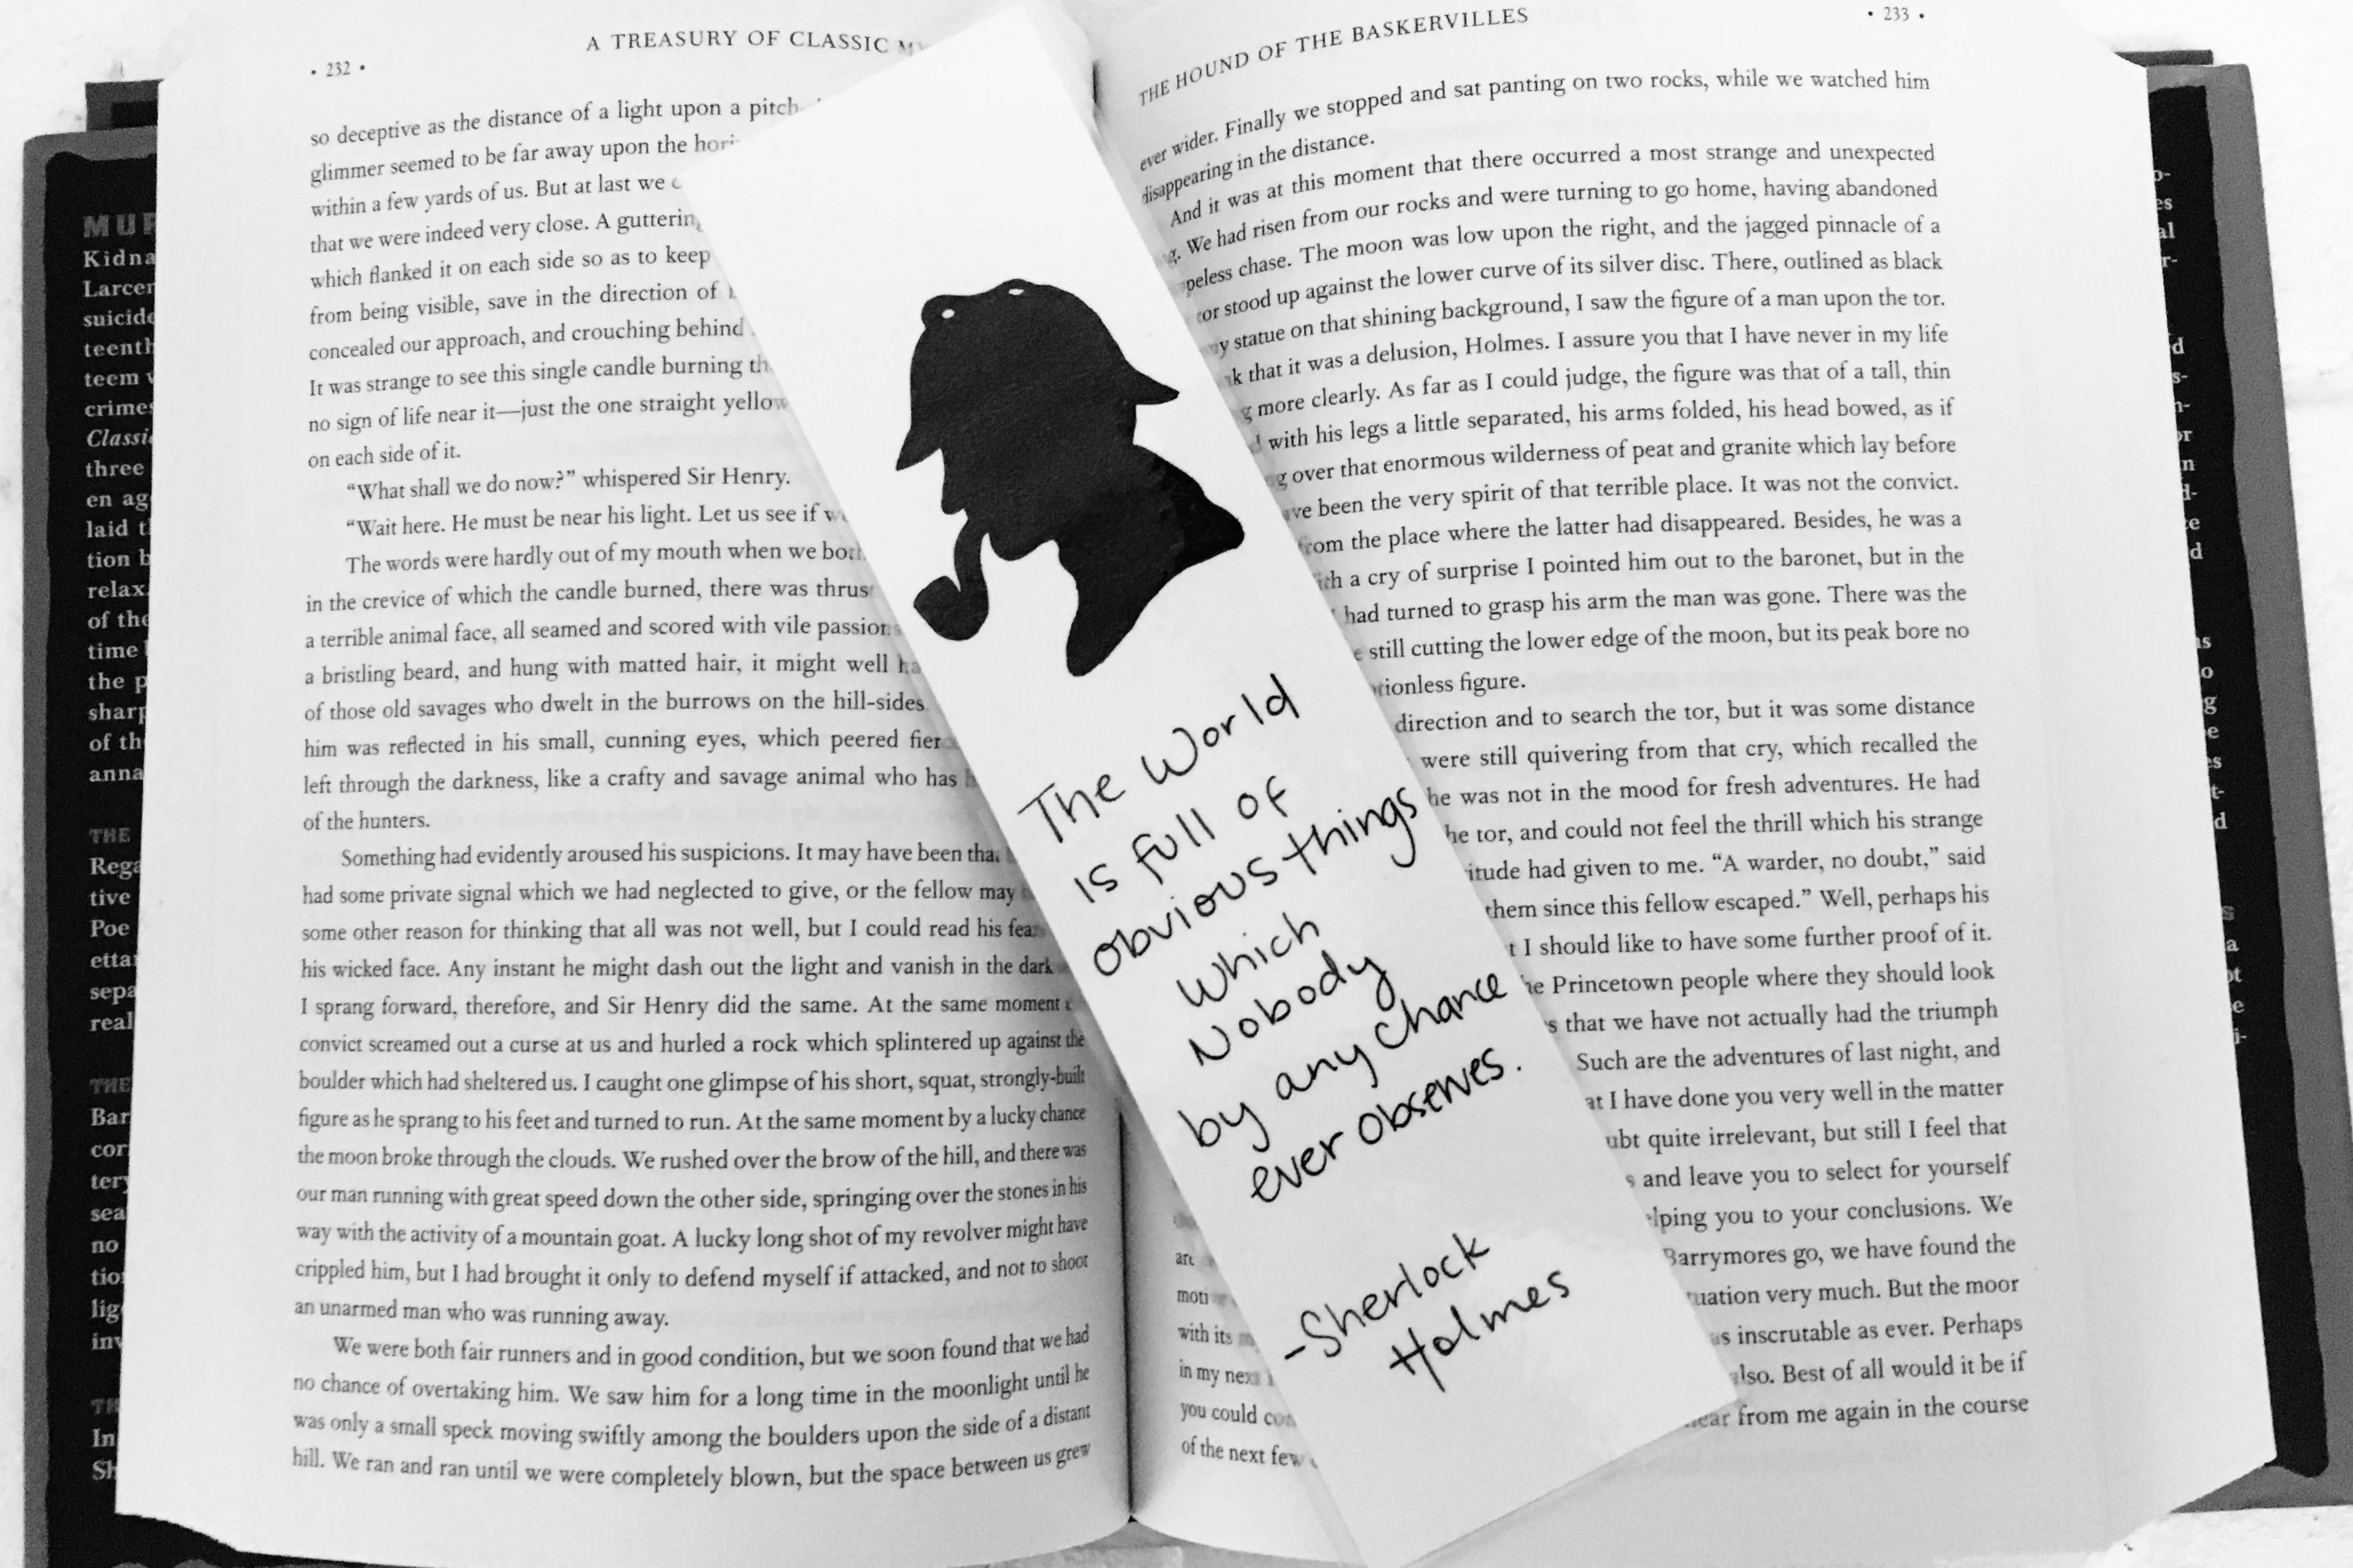 • 232 •
A TREASURY OF CLASSIC
so deceptive as the distance of a light upon a
glimmer seemed to be far away upon the
within a few yards of us. But at last we
that we were indeed very close. A
which flanked it on each side so as to keep
from being visible, save in the direction of
concealed our approach, and crouching behind
It was strange to see this single candle burning
no sign of life near it—just the one straight yellow
on each side of it.
“What shall we do now?” whispered Sir Henry.
“Wait here. He must be near his light. Let us see if
The words were hardly out of my mouth when we
in the crevice of which the candle burned, there was
a terrible animal face, all seamed and scored with vile
a bristling beard, and hung with matted hair, it might well
of those old savages who dwelt in the burrows on the hill-sides
him was reflected in his small, cunning eyes, which peered
left through the darkness, like a crafty and savage animal who has
of the hunters.
Something had evidently aroused his suspicions. It may have been
had some private signal which we had neglected to give, or the fellow may
some other reason for thinking that all was not well, but I could read his
his wicked face. Any instant he might dash out the light and vanish in the dark
I sprang forward, therefore, and Sir Henry did the same. At the same moment
convict screamed out a curse at us and hurled a rock which splintered up against the
boulder which had sheltered us. I caught one glimpse of his short, squat, strongly-built
figure as he sprang to his feet and turned to run. At the same moment by a lucky chance
the moon broke through the clouds. We rushed over the brow of the hill, and there was
our man running with great speed down the other side, springing over the stones in his
way with the activity of a mountain goat. A lucky long shot of my revolver might have
crippled him, but I had brought it only to defend myself if attacked, and not to shoot
an unarmed man who was running away.
We were both fair runners and in good condition, but we soon found that we had
no chance of overtaking him. We saw him for a long time in the moonlight until he
was only a small speck moving swiftly among the boulders upon the side of a distant
hill. We ran and ran until we were completely blown, but the space between us grew
The World
is full of
obvious things
which
Nobody
by any chance
ever observes.
-Sherlock
Holmes
THE HOUND OF THE BASKERVILLES
• 233 •
ever wider. Finally we stopped and sat panting on two rocks, while we watched him
disappearing in the distance.
And it was at this moment that there occurred a most strange and unexpected
We had risen from our rocks and were turning to go home, having abandoned
chase. The moon was low upon the right, and the jagged pinnacle of a
stood up against the lower curve of its silver disc. There, outlined as black
statue on that shining background, I saw the figure of a man upon the tor.
that it was a delusion, Holmes. I assure you that I have never in my life
more clearly. As far as I could judge, the figure was that of a tall, thin
with his legs a little separated, his arms folded, his head bowed, as if
over that enormous wilderness of peat and granite which lay before
been the very spirit of that terrible place. It was not the convict.
from the place where the latter had disappeared. Besides, he was a
a cry of surprise I pointed him out to the baronet, but in the
had turned to grasp his arm the man was gone. There was the
still cutting the lower edge of the moon, but its peak bore no
figure.
direction and to search the tor, but it was some distance
were still quivering from that cry, which recalled the
he was not in the mood for fresh adventures. He had
tor, and could not feel the thrill which his strange
had given to me. “A warder, no doubt,” said
them since this fellow escaped.” Well, perhaps his
I should like to have some further proof of it.
Princetown people where they should look
that we have not actually had the triumph
Such are the adventures of last night, and
I have done you very well in the matter
quite irrelevant, but still I feel that
and leave you to select for yourself
you to your conclusions. We
Barrymores go, we have found the
very much. But the moor
inscrutable as ever. Perhaps
Best of all would it be if
from me again in the course
with its
in my
you could
of the next few